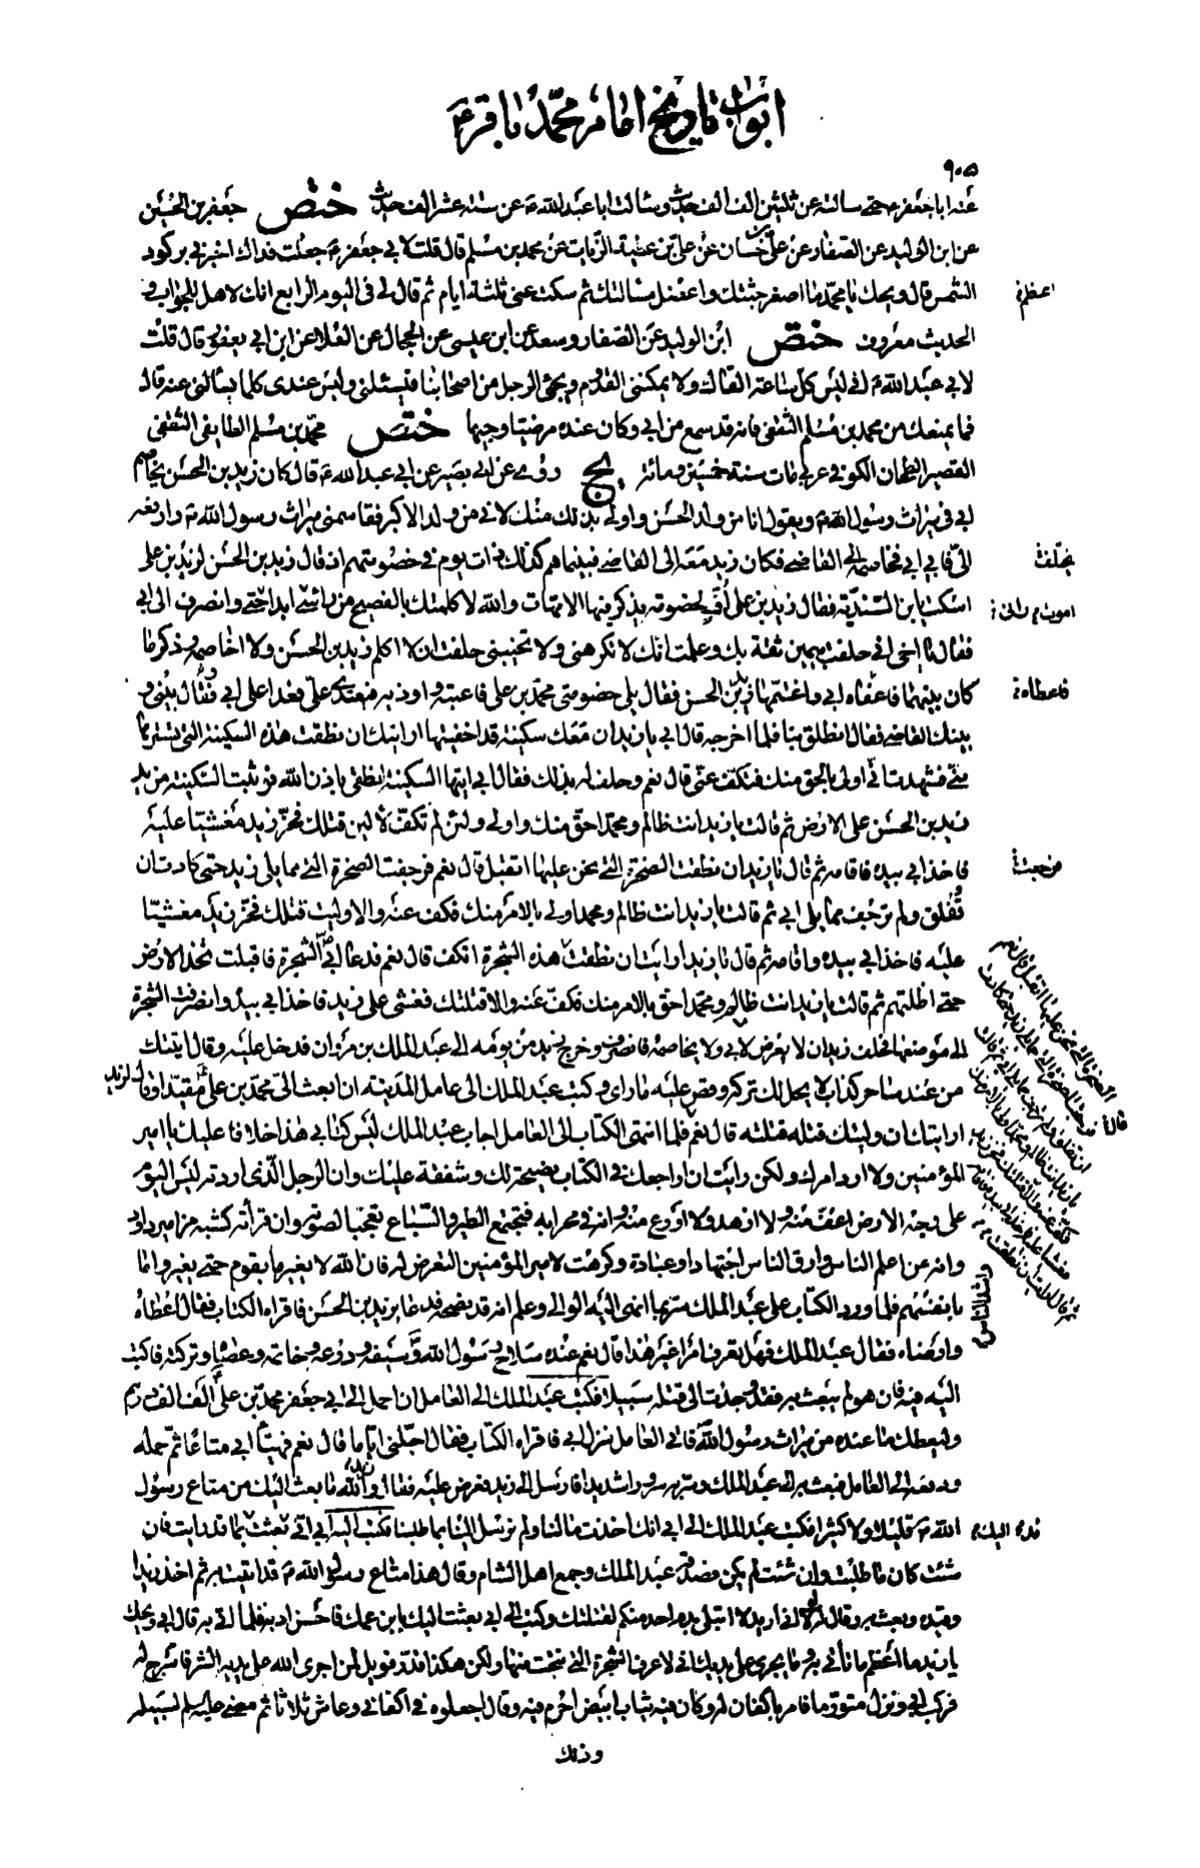 ابواب تاريخ امام محمد باقر ع
٩٠٥
عنه ابا جعفر ع حتى سالته عن ثلثين الف حديث وسالت ابا عبد الله ع عن ستة عشر الف حديث ختص جعفر بن الحسين
عن ابن الوليد عن الصفار عن علي بن حسان عن علي بن عطية الزيات عن محمد بن مسلم قال قلت لابي جعفر ع جعلت فداك اخبرني بركود
الشمس قال ويحك يا محمد ما اصغر جثتك واعضل مسالتك ثم سكت عني ثلثة ايام ثم قال لي في اليوم الرابع انك لاهل للجواب و
اعظم
الحديث معروف ختص ابن الوليد عن الصفار وسعد عن ابن عيسى عن الحجال عن العلا عن ابن ابي يعفور قال قلت
لابي عبد الله ع اني ليس كل ساعة القاك ولا يمكنني القدوم ويجئ الرجل من اصحابنا فيسئلني وليس عندي كلما يسالني عنه قال
فما يمنعك من محمد بن مسلم الثقفي فانه قد سمع من ابي وكان عنده مرضيا وجيها ختص محمد بن مسلم الطايفي الثقفي
القصير الطحان الكوفي عربي مات سنة خمسين ومائة يج روى عن ابي بصير عن ابي عبد الله ع قال كان زيد بن الحسن يخاصم
ابي في ميراث رسول الله ص ويقول انا من ولد الحسن واولى بذلك منك لاني من ولد الاكبر فقاسمني ميراث رسول الله ص وادفعه
الي فابى ابي فخاصمه الى القاضي فكان زيد معه الى القاضي فبينما هم كذلك ذات يوم في خصومتهم اذ قال زيد بن الحسن لزيد بن علي
يختلف
اسكت يا بن السندية فقال زيد بن علي اف لخصومة يذكر فيها الامهات والله لا كلمتك بالفصيح من راسي ابدا حتى وانصرف الى ابي
اموت
فقال يا اخي اني حلفت بيمين ثقة بك وعلمت انك لا تكرهني ولا تخيبني حلفت ان لا اكلم زيد بن الحسن ولا اخاصمه وذكر ما
كان بينهما فاعفاه ابي واغتنمها زيد بن الحسن فقال يلي خصومتي محمد بن علي فاعتبه واوذيه فيعتدي علي فعدا على ابي فقال بيني و
فاعطاه
بينك القاضي فقال انطلق بنا فلما اخرجه قال ابي يا زيد ان معك سكينة قد اخفيتها ارايتك ان نطقت هذه السكينة التي تسترها
مني فشهدت اني اولى بالحق منك فتكف عني قال نعم وحلف له بذلك فقال ابي ايتها السكينة انطقي باذن الله فوثبت السكينة من يد
زيد بن الحسن على الارض ثم قالت يا زيد انت ظالم ومحمد احق منك واولى ولئن لم تكف لالين قتلك فخر زيد مغشيا عليه
فاخذ ابي بيده فاقامه ثم قال يا زيد ان نطقت الصخرة التي نحن عليها اتقبل قال نعم فرجفت الصخرة التي مما يلي زيد حتى كادت ان
فرجعت
تفلق ولم ترجف مما يلي ابي ثم قالت يا زيد انت ظالم ومحمد اولى بالامر منك فكف عنه والا وليت قتلك فخر زيد مغشيا
عليه فاخذ ابي بيده واقامه ثم قال يا زيد ارايت ان نطقت هذه الشجرة اتكف قال نعم فدعا ابي ع الشجرة فاقبلت تخد الارض
حتى اظلتهم ثم قالت يا زيد انت ظالم ومحمد احق بالامر منك فكف عنه والا قتلتك فغشي على زيد فاخذ ابي بيده وانصرفت الشجرة
الى موضعها فحلف زيد ان لا يعرض لابي ولا يخاصمه فانصرف وخرج زيد من يومه الى عبد الملك بن مروان فدخل عليه وقال اتيتك
من عند ساحر كذاب لا يحل لك تركه وقص عليه ما راى وكتب عبد الملك الى عامل المدينة ان ابعث الي محمد بن علي مقيدا وقال لزيد
ارايتك ان وليتك قتله قتلته قال نعم فلما انتهى الكتاب الى العامل اجاب عبد الملك ليس كتابي هذا خلافا عليك يا امير
المؤمنين ولا ارد امرك ولكن رايت ان اراجعك في الكتاب نصيحة لك وشفقة عليك وان الرجل الذي اردته ليس اليوم
على وجه الارض اعف منه ولا ازهد ولا اورع منه وانه في محرابه فيجتمع الطير والسباع تعجبا لصوته وان قراته كشبه مزامير داود
وانه من اعلم الناس وارق الناس اجتهادا وعبادة وكرهت لامير المؤمنين التعرض له فان الله لا يغير ما بقوم حتى يغيروا ما
واشد الناس
بانفسهم فلما ورد الكتاب على عبد الملك سر بما انهى اليه الوالي وعلم انه قد نصحه فدعا بزيد بن الحسن فاقراه الكتاب فقال اعطاه
وارضاه فقال عبد الملك فهل تعرف امرا غير هذا قال نعم عنده سلاح رسول الله ص وسيفه ودرعه وخاتمه وعصاه وتركته فاكتب
اليه فيه فان هو لم يبعث به فقد وجدت الى قتله سبيلا فكتب عبد الملك الى العامل ان احمل الى ابي جعفر محمد بن علي الف الف درهم
وليعطك ما عنده من ميراث رسول الله ص فاتى العامل منزل ابي فاقراه الكتاب فقال اجلني اياما قال نعم فهيا ابي متاعا ثم حمله
ودفعه الى العامل فبعث به الى عبد الملك وسر به سرورا شديدا فارسل الى زيد فعرض عليه فقال زيد والله ما بعث اليك من متاع رسول
الله ص قليلا ولا كثيرا فكتب عبد الملك الى ابي انك اخذت مالنا ولم ترسل الينا بما طلبنا فكتب اليه ابي اني قد بعثت بما قد رايت فان
شئت كان ما طلبت وان شئت لم يكن فصدقه عبد الملك وجمع اهل الشام وقال هذا متاع رسول الله ص قد اتيت به ثم اخذ زيدا
وقيده وبعث به وقال له لولا اني اريد لا ابتلي بدم احد منكم لقتلتك وكتب الى ابي بعثت اليك بابن عمك فاحسن ادبه فلما اتي به قال ابي ويحك
يا زيد ما اعظم ما تاتي به وما يجري على يديك اني لاعرف الشجرة التي نحتت منها ولكن هكذا قدر فويل لمن اجرى الله على يديه الشر فاسرج له
فركب ابي ونزل متورما فامر باكفان له وكان فيه ثياب ابيض احرم فيه وقال اجعلوه في اكفاني وعاش ثلاثا ثم مضى عليه السلام لسبيله
وذلك